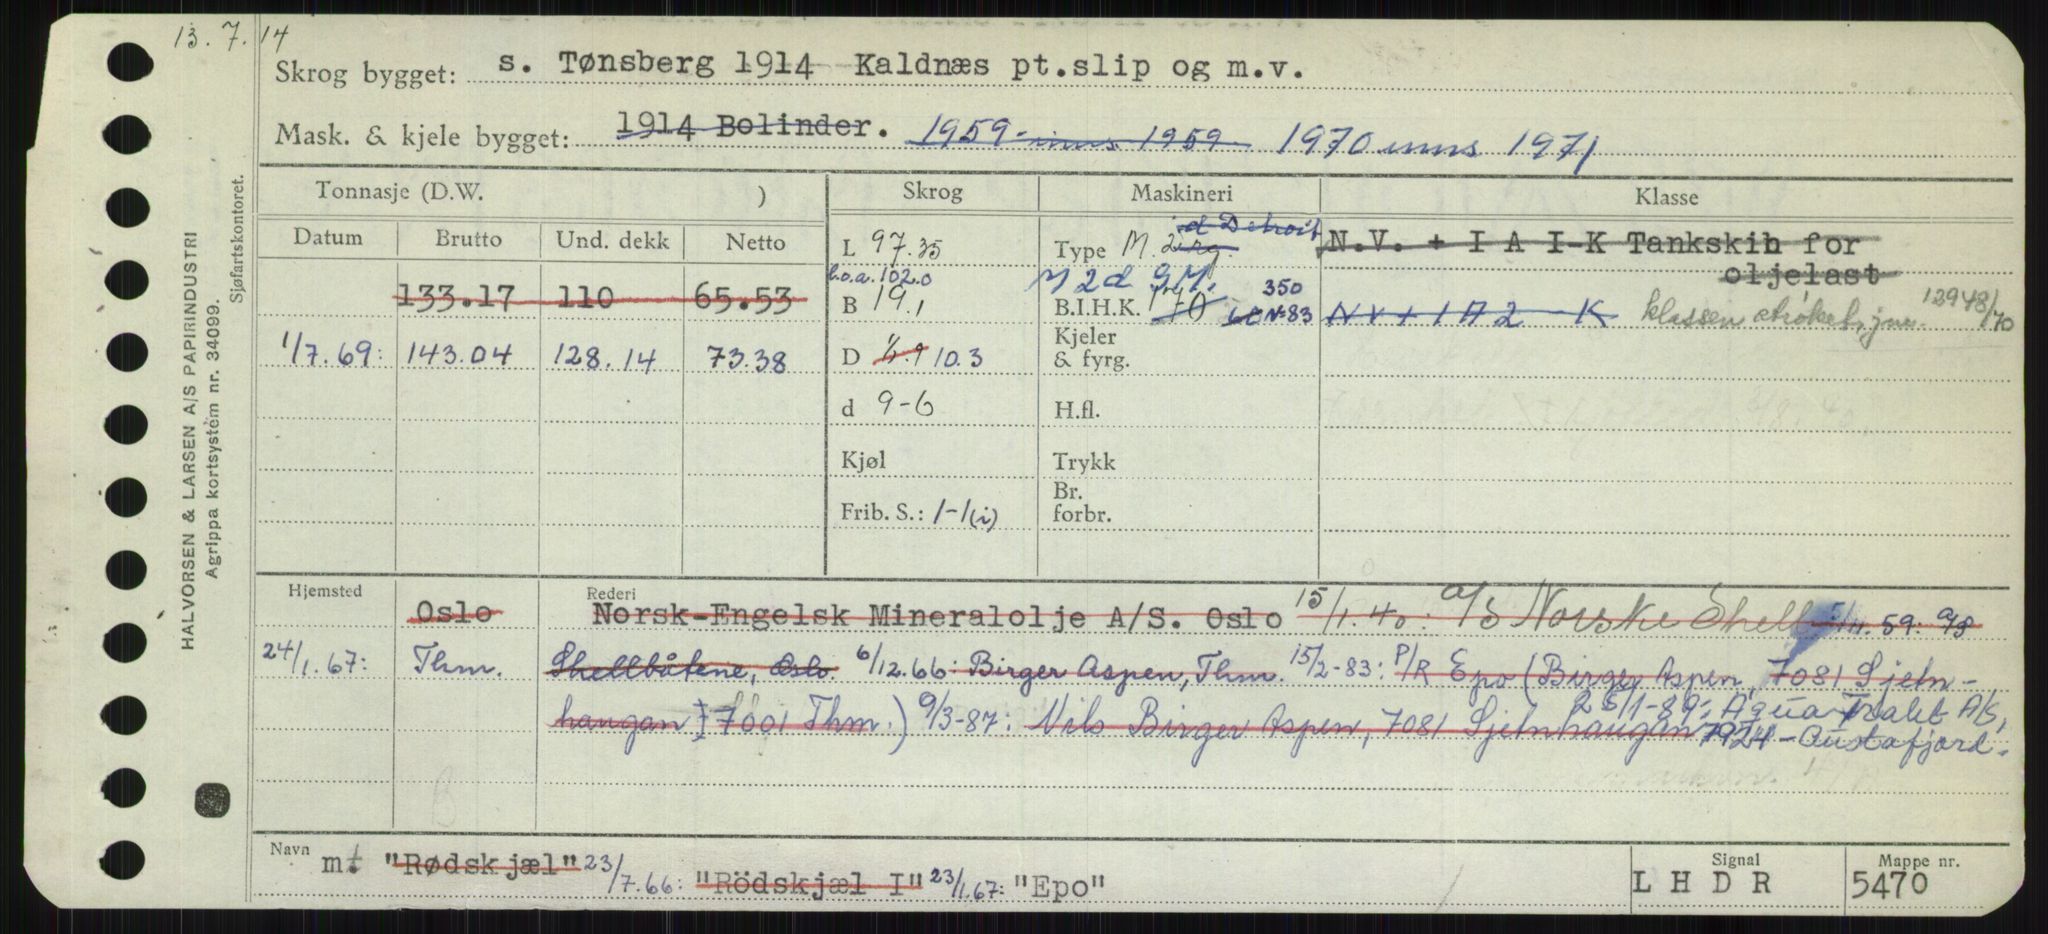 13.7.14
Skrog bygget: s. Tønsberg 1914 Kaldnæs pt.slip og m.v.
Mask. & kjele bygget: 1914 Bolinder. 1959 inns 1959 1970 inns 1971
Tonnasje (D.W. ) Skrog Maskineri Klasse
Datum Brutto Und. dekk Netto
133.17 110 65.53
1/7.69: 143.04 128.14 73.38
L 97.35
l.o.a. 102.0
B 19,1
D 10.3
d 9-6
Kjøl
Frib. S.: 1-1(i)
d Detroit
Type M. 2
M 2d G.M.
350
B.I.H.K. 170 83
Kjeler
& fyrg.
H.fl.
Trykk
Br.
forbr.
N.V. + I A I-K Tankskih for
oljelast
NV + 1A2 - K klassen strøket, jnr. 12948/70
Hjemsted Rederi
Oslo Norsk-Engelsk Mineralolje A/S. Oslo 15/1.40: A/S Norske Shell 5/11.59: A/S
24/1.67: Thm. Shellbåtene, Oslo. 6/12.66: Birger Aspen, Thm. 15/2-83: P/R Epo (Birger Aspen, 7081 Sjetn-
haugan 7001 Thm.) 9/3-87: Nils Birger Aspen, 7081 Sjetnhaugan 25/1-89: Aqua Trakt A/S,
7924 - Austafjord.
Navn m "Rødskjæl" 23/7.66: "Rödskjæl I" 23/1.67: "Epo"
Signal
L H D R
Mappe nr.
5470
HALVORSEN & LARSEN A/S PAPIRINDUSTRI
Agrippa kortsystem nr. 34099.
Sjøfartskontoret.